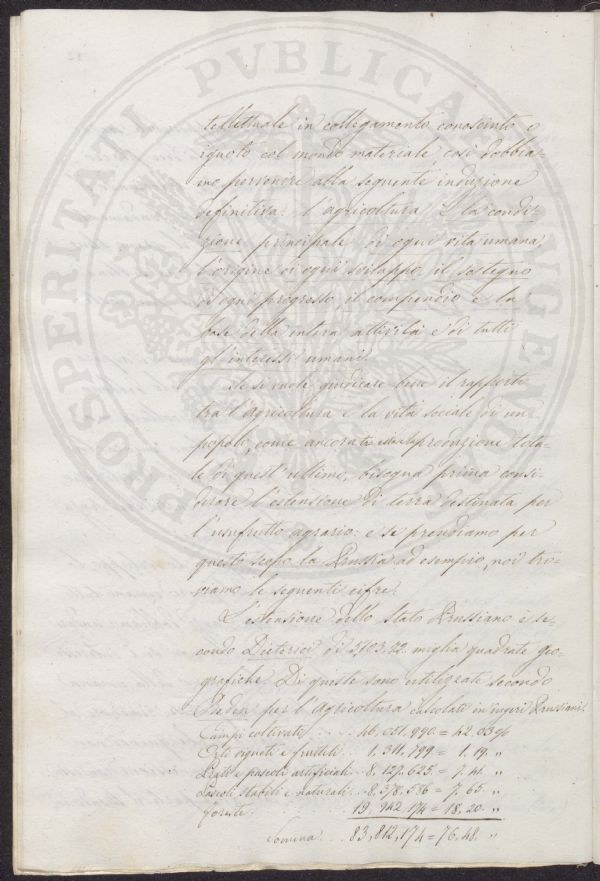 PROSPERITATI PVBLICAE AVGENDAE
tellettuale in collegamento conosciuto o
ignoto col mondo materiale così dobbia-
mo pervenire alla seguente induzione
definitiva: l'agricoltura è la condi-
zione principale di ogni vita umana,
l'origine di ogni sviluppo, il sostegno
di ogni progresso il compendio e la
base della intera attività e di tutti
gl'interessi umani.
Se si vuole giudicare bene il rapporto
tra l'Agricoltura e la vita sociale di un
popolo, come ancora tra essa e la produzione tota-
le di quest'ultimo, bisogna prima consi-
derare l'estensione di terra destinata per
l'usufrutto agrario: e se prendiamo per
questo scopo la Prussia ad esempio, noi tro-
viamo le seguenti cifre.
L'estensione dello Stato Prussiano è se-
condo Dieterici di 5103.22. miglia quadrate geo-
grafiche. Di queste sono utilizzate secondo
per l'Agricoltura calcolate in iugeri Prussiani.
Campi coltivati . . . 46,011,990. = 42.03%
Orti vigneti e frutteti . 1.311,799 = 1.19. "
Prati e pascoli artificiali . 8,127.625. = 7.41. "
Pascoli stabili e naturali . . 8.378.586 = 7.65. "
Foreste . . . 19.942.174 = 18.20. "
Somma . . . 83,812,174 = 76,48. "